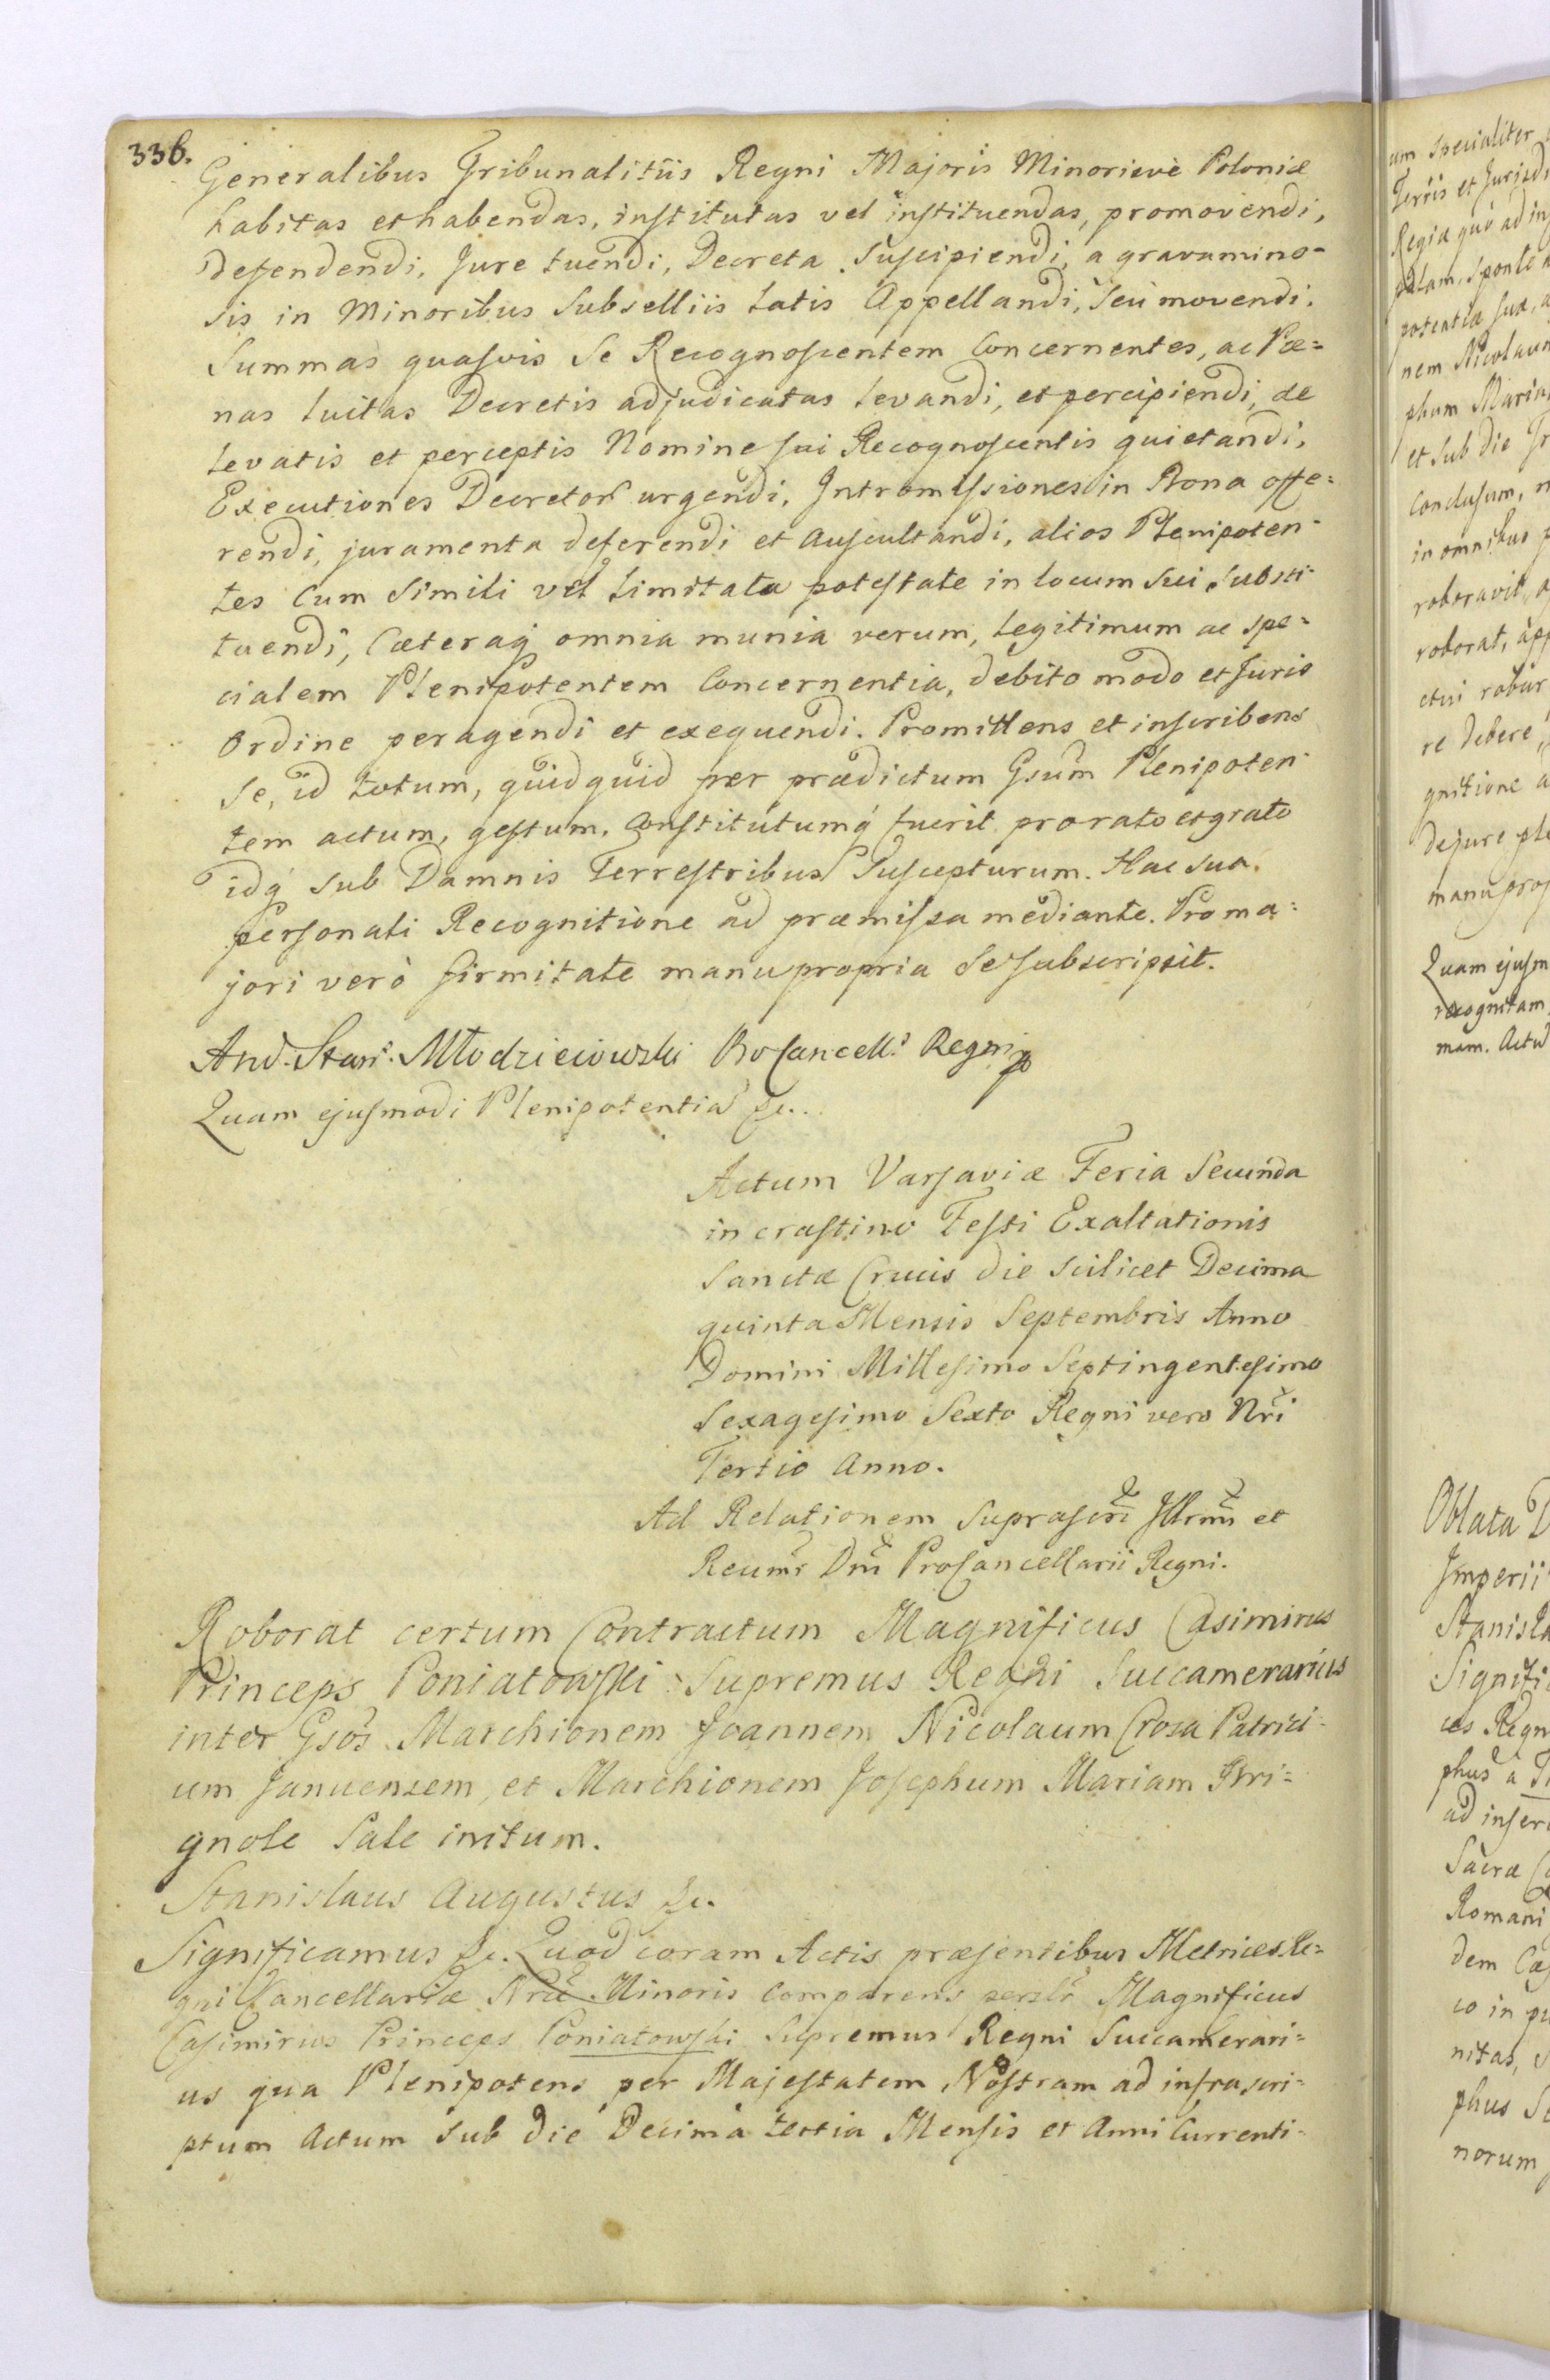 336.
Generalibus Tribunalitiis Regni Majoris Minorisvè Poloniæ
habitas et habendas, institutas vel instituendas, promovendi,
defendendi, Jure tuendi, Decreta suscipiendi, a gravamino-
sis in Minoribus Subselliis latis Appellandi, seu movendi.
Summas quasvis se Recognoscentem Concernentes, ac Pœ=
nas luitas Decretis adjudicatas levandi, et percipiendi, de
levatis et perceptis Nomine sui Recognoscentis quietandi,
Executiones Decretor urgendi, Intromissiones in Bona offe=
rendi, juramenta deferendi et auscultandi, alios Plenipoten-
tes Cum simili vel limitata potestate in locum sui substi-
tuendi, Cæteraq omnia munia verum, legitimum ac spe=
cialem Plenipotentem Concernentia, debito modo et Juris
Ordine peragendi et exequendi. Promittens et inscribens
se, id totum, quidquid per prædictum Gsum Plenipoten-
tem actum, gestum, Constitútumq fuerit pro rato et grato
idq sub Damnis Terrestribus suscepturum. Hac sua
personali Recognitione ad præmissa mediante. Pro ma=
jori verò firmitate manu propria se subscripsit.
And. Stan. Młodzieiowski ProCancell. Regni
Quam ejusmodi Plenipotentia &c..
Actum Varsaviæ Feria Secunda
in crastino Festi Exaltationis
Sanctæ Crucis die scilicet Decima
quinta Mensis Septembris Anno
Domini Millesimo Septingentesimo
Sexagesimo Sexto Regni vero Nri
Tertio Anno.
Ad Relationem suprascri Illrmi et
Recumi Dni ProCancellarii Regni.
Roborat certum Contractum Magnificus Casimirus
Princeps Poniatowski Supremus Regni Succamerarius
inter Gsos Marchionem Joannem Nicolaum Crosa Patrici-
um Januensem, et Marchionem Josephum Mariam Bri=
gnole Sale initum.
Stanislaus Augustus &c.
Significamus &c. Quod coram Actis præsentibus Metrices Re=
gni Cancellariæ Nræ Minoris Comparens persli Magnificus
Casimirus Princeps Poniatowski Supremus Regni Succamerari=
us qua Plenipotens per Majestatem Nostram ad infrascri=
ptum Actum sub die Decima tertia Mensis et Anni Currenti=
um specialiter
Terris et Jurisdi
Regia quò ad in
palam, sponte
potentia sua,
nem Nicolaum
phum Mariam
et sub die
Conclusum,
in omnibus
roboravit,
roborat, app
ctui robur
re debere,
gnitione a
de jure ple
manu prop
Quam ejusm
recognitam
mam. Actu
Oblata D
Imperii
Stanisla
Signific
ces Regn
phus a
ad inser
Sacræ
Romani
dem Cæ
co in pu
nitas,
phus
norum